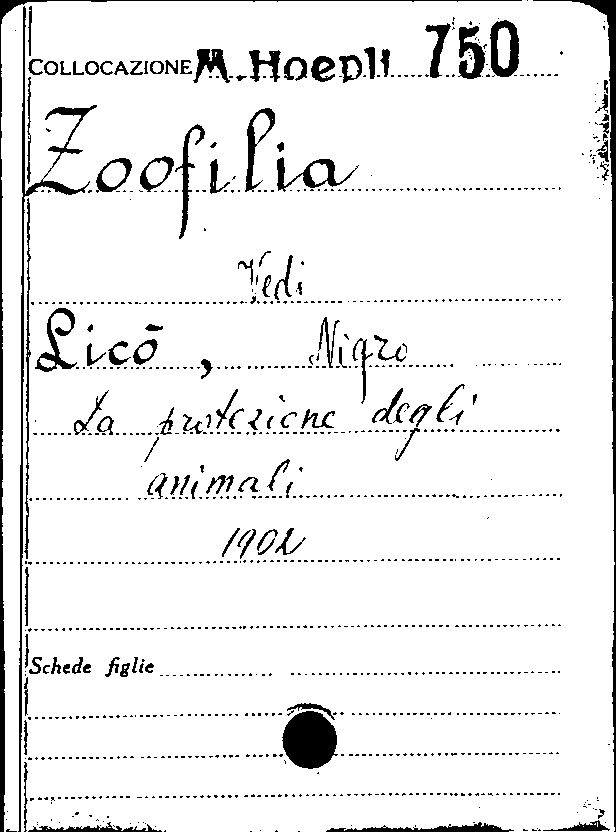 COLLOCAZIONE M. Hoepli 750
Zoofilia
Vedi
Licò, Nigro
La protezione degli
animali
1902
Schede figlie